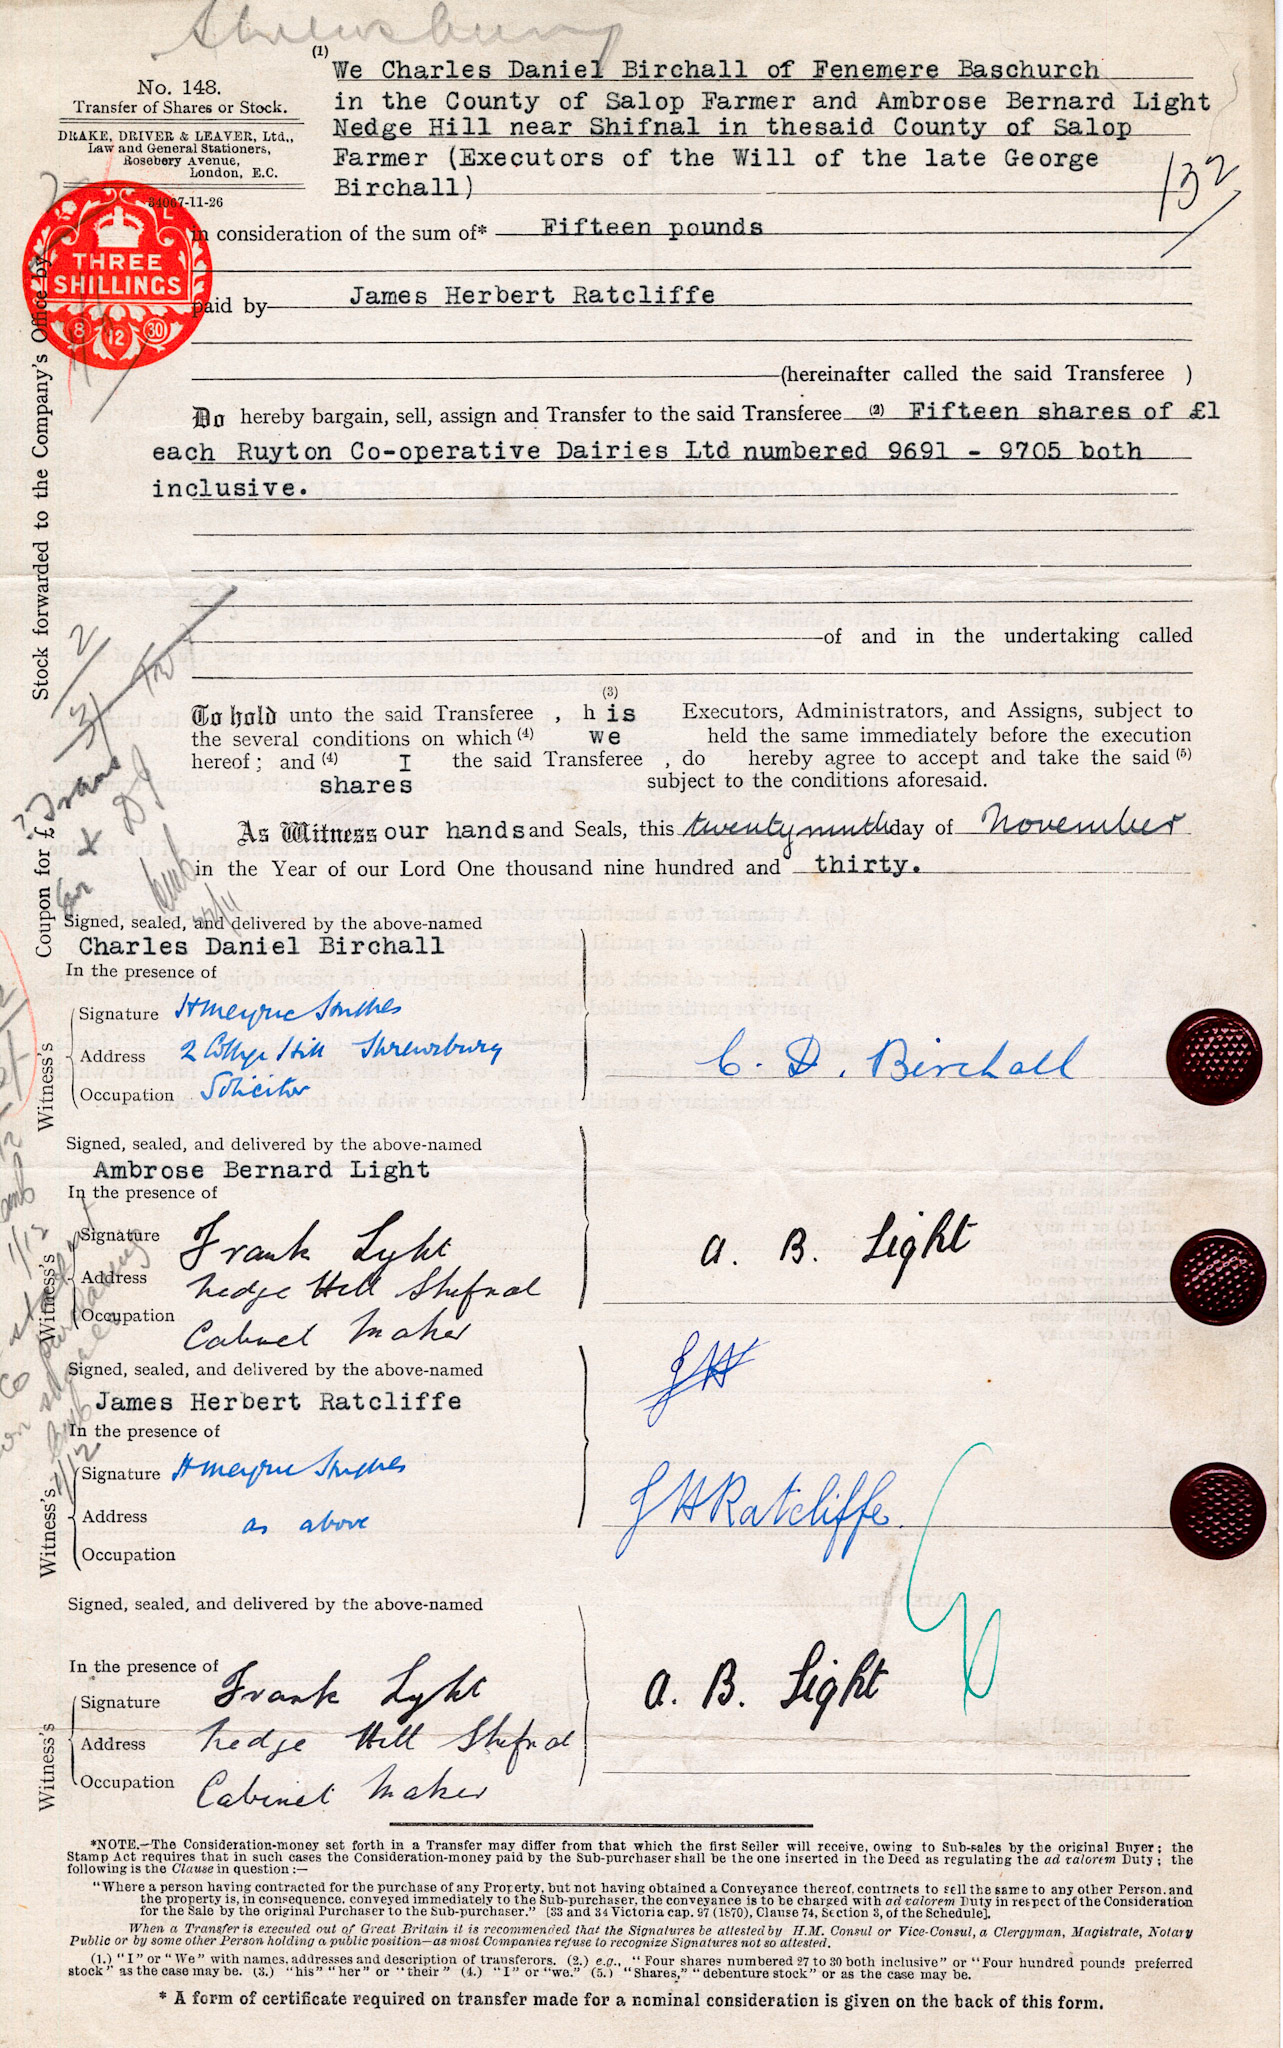 Shrewsbury
No. 148.
Transfer of Shares or Stock.
DRAKE, DRIVER & LEAVER, Ltd.,
Law and General Stationers,
Rosebery Avenue,
London, E.C.
34067-11-26
(1) We Charles Daniel Birchall of Fenemere Baschurch
in the County of Salop Farmer and Ambrose Bernard Light
Nedge Hill near Shifnal in thesaid County of Salop
Farmer (Executors of the Will of the late George
Birchall)
132
THREE
SHILLINGS
8 12 30
in consideration of the sum of* Fifteen pounds
paid by James Herbert Ratcliffe
(hereinafter called the said Transferee )
Do hereby bargain, sell, assign and Transfer to the said Transferee (2) Fifteen shares of £1
each Ruyton Co-operative Dairies Ltd numbered 9691 - 9705 both
inclusive.
of and in the undertaking called
(3)
To hold unto the said Transferee , his Executors, Administrators, and Assigns, subject to
the several conditions on which (4) we held the same immediately before the execution
hereof; and (4) I the said Transferee , do hereby agree to accept and take the said (5)
shares subject to the conditions aforesaid.
As Witness our hands and Seals, this twenty ninth day of November
in the Year of our Lord One thousand nine hundred and thirty.
Coupon for £
Stock forwarded to the Company's Office by
Signed, sealed, and delivered by the above-named
Charles Daniel Birchall
In the presence of
Witness's
Signature
Address 2 College Hill Shrewsbury
Occupation Solicitor
C. D. Birchall
Signed, sealed, and delivered by the above-named
Ambrose Bernard Light
In the presence of
Witness's
Signature Frank Light
Address Nedge Hill Shifnal
Occupation Cabinet Maker
A. B. Light
Signed, sealed, and delivered by the above-named
James Herbert Ratcliffe
In the presence of
Witness's
Signature
Address as above
Occupation
JH
J H Ratcliffe.
Signed, sealed, and delivered by the above-named
In the presence of
Witness's
Signature Frank Light
Address Nedge Hill Shifnal
Occupation Cabinet Maker
A. B. Light
*NOTE.—The Consideration-money set forth in a Transfer may differ from that which the first Seller will receive, owing to Sub-sales by the original Buyer; the
Stamp Act requires that in such cases the Consideration-money paid by the Sub-purchaser shall be the one inserted in the Deed as regulating the ad valorem Duty; the
following is the Clause in question:—
"Where a person having contracted for the purchase of any Property, but not having obtained a Conveyance thereof, contracts to sell the same to any other Person, and
the property is, in consequence, conveyed immediately to the Sub-purchaser, the conveyance is to be charged with ad valorem Duty in respect of the Consideration
for the Sale by the original Purchaser to the Sub-purchaser." [33 and 34 Victoria cap. 97 (1870), Clause 74, Section 3, of the Schedule].
When a Transfer is executed out of Great Britain it is recommended that the Signatures be attested by H.M. Consul or Vice-Consul, a Clergyman, Magistrate, Notary
Public or by some other Person holding a public position—as most Companies refuse to recognize Signatures not so attested.
(1.) "I" or "We" with names, addresses and description of transferors. (2.) e.g., "Four shares numbered 27 to 30 both inclusive" or "Four hundred pounds preferred
stock" as the case may be. (3.) "his" "her" or "their" (4.) "I" or "we." (5.) "Shares," "debenture stock" or as the case may be.
* A form of certificate required on transfer made for a nominal consideration is given on the back of this form.